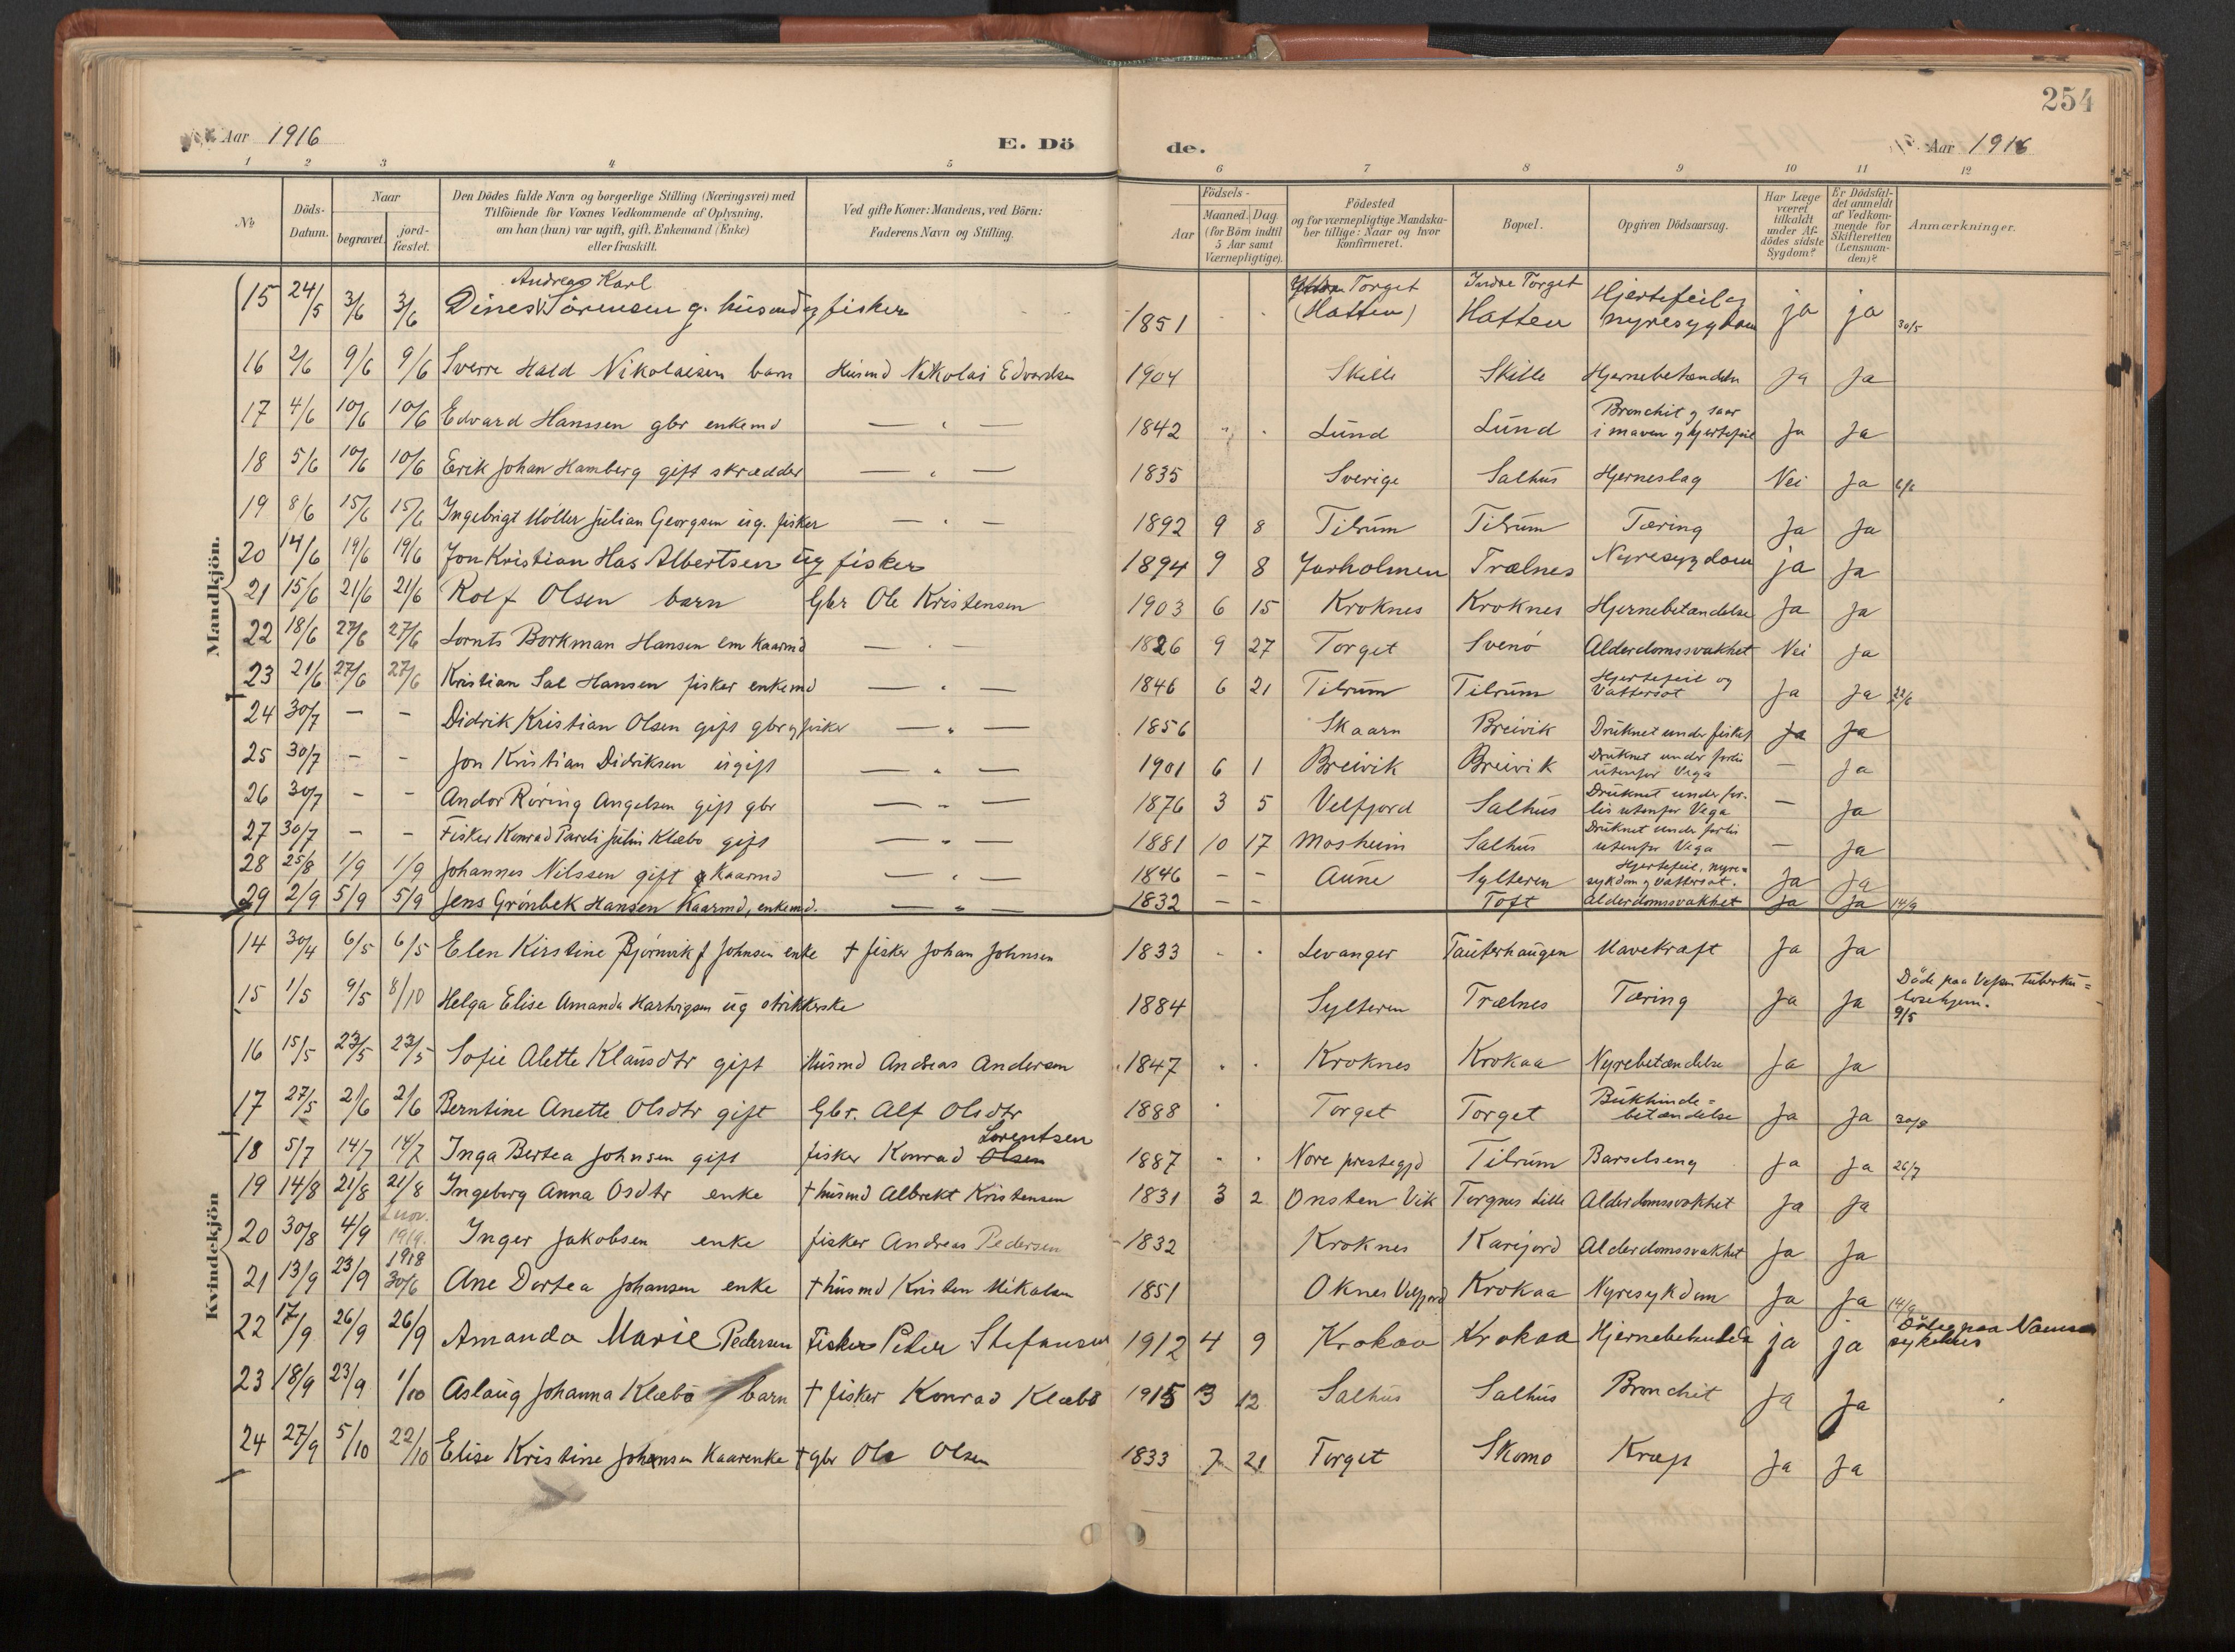 254
Aar 1916
E. Dö
de.
Aar 1916
1 2 3 4 5 6 7 8 9 10 11 12
No
Döds-Datum.
Naar
begravet.
jord-fæstet.
Den Dödes fulde Navn og borgerlige Stilling (Næringsvei) med
Tilföiende for Voxnes Vedkommende af Oplysning,
om han (hun) var ugift, gift, Enkemand (Enke)
eller fraskilt.
Ved gifte Koner: Mandens, ved Börn:
Faderens Navn og Stilling.
Födsels-
Aar
Maaned. Dag.
(for Börn indtil
5 Aar samt
Værnepligtige).
Födested
og for værnepligtige Mandska-
ber tillige: Naar og hvor
konfirmeret.
Bopæl.
Opgiven Dödsaarsag.
Har Læge
været
tilkaldt
under Af-
dödes sidste
Sygdom?
Er Dödsfal-
det anmeldt
af Vedkom-
mende for
Skifteretten
(Lensman-
den)?
Anmærkninger.
Mandkjön.
Andreas Karl Torget Indre Torget
15 24/5 3/6 3/6 Dines Sörensen g. husmd og fisker 1851 (Hatten) Hatten Hjertefeil og nyresygdom ja ja 30/5
16 2/6 9/6 9/6 Sverre Hald Nikolaisen barn Husmd Nikolai Edvardsen 1904 Skille Skille Hjernebetændelse Ja Ja
17 4/6 10/6 10/6 Edvard Hanssen gbr enkemd — " — 1842 Lund Lund Bronchit og saar i maven og hjertefeil Ja Ja
18 5/6 10/6 10/6 Erik Johan Hamberg gift skrædder — " — 1835 Sverige Salhus Hjerneslag Nei Ja 6/6
19 8/6 15/6 15/6 Ingebrigt Möller Julian Georgsen ug. fisker — " — 1892 9 8 Tilrum Tilrum Tæring Ja Ja
20 14/6 19/6 19/6 Jon Kristian Has Albertsen ug fisker 1894 9 8 Jarholmen Trælnes Nyresygdom ja Ja
21 15/6 21/6 21/6 Rolf Olsen barn Gbr Ole Kristensen 1903 6 15 Kroknes Kroknes Hjernebetændelse Ja Ja
22 18/6 27/6 27/6 Lornts Borkman Hansen em kaarmd — " — 1826 9 27 Torget Svenö Alderdomssvakhet Nei Ja
23 21/6 27/6 27/6 Kristian Sal Hansen fisker enkemd — " — 1846 6 21 Tilrum Tilrum Hjertefeil og Vattersot Ja Ja 22/6
24 30/7 — — Didrik Kristian Olsen gift gbr og fisker — " — 1856 Skaarn Breivik Druknet under fiske Ja Ja
25 30/7 — — Jon Kristian Didriksen ugift — " — 1901 6 1 Breivik Breivik Druknet under forlis utenfor Vega — Ja
26 30/7 — — Andor Röring Angelsen gift gbr — " — 1876 3 5 Velfjord Salhus Druknet under forlis utenfor Vega — Ja
27 30/7 — — Fisker Konrad Pareli Julin Klæbo gift — " — 1881 10 17 Mosheim Salhus Druknet under forlis utenfor Vega — Ja
28 25/8 1/9 1/9 Johannes Nilssen gift Kaarmd — " — 1846 — — Aune Sylteren Hjertefeil, nyresykdom og vattersot. Ja Ja
29 2/9 5/9 5/9 Jens Grönbek Hansen Kaarmd, enkemd. — " — 1832 — — Toft alderdomssvakhet Ja Ja 14/9
Kvindekjön
14 30/4 6/5 6/5 Elen Kirstine Björnvik f Johnsen enke † fisker Johan Johnsen 1833 Levanger Tauterhaugen Mavekræft Ja Ja
15 1/5 9/5 8/10 Helga Elise Amanda Hartvigsen ug strikkerske 1884 Sylteren Trælnes Tæring Ja Ja Döde paa Vefsen tuberkulosehjem. 9/5
16 15/5 23/5 23/5 Sofie Alette Klausdtr gift Husmd Andreas Andersen 1847 Kroknes Krokaa Nyrebetændelse Ja Ja
17 27/5 2/6 2/6 Berntine Anette Olsdtr gift Gbr. Alf Olsdtr 1888 Torget Torget Bukhindebetændelse Ja Ja 30/8
Lorentsen
18 5/7 14/7 14/7 Inga Bertea Johnsen gift fisker Konrad Olsen 1887 Nore prestegjd Tilrum Barselseng Ja Ja 26/7
19 14/8 21/8 21/8 Ingeborg Anna Osdtr enke † husmd Albrekt Kristensen 1831 3 2 Onsten Vik Torgnes lille Alderdomssvakhet Ja Ja
20 30/8 4/9 2 nov. 1919. Inger Jakobsen enke fisker Andreas Pedersen 1832 Kroknes Karijord Alderdomssvakhet Ja Ja
21 13/9 23/9 1918 30/6 Ane Dortea Johansen enke † husmd Kristen Mikalsen 1851 Oknes Velfjord Krokaa Nyresykdom Ja Ja 14/9
22 17/9 26/9 26/9 Amanda Marie Pedersen Fisker Peter Stefansen 1912 4 9 Krokaa Krokaa Hjernebetændelse ja ja paa Namsos sykehus
23 18/9 23/9 1/10 Aslaug Johanna Klæbö barn † fisker Konrad Klæbö 1915 3 12 Salhus Salhus Bronchit Ja Ja
24 27/9 5/10 22/10 Elise Kristine Johansen Kaarenke † gbr Ole Olsen 1833 7 21 Torget Skomo Kræft Ja Ja